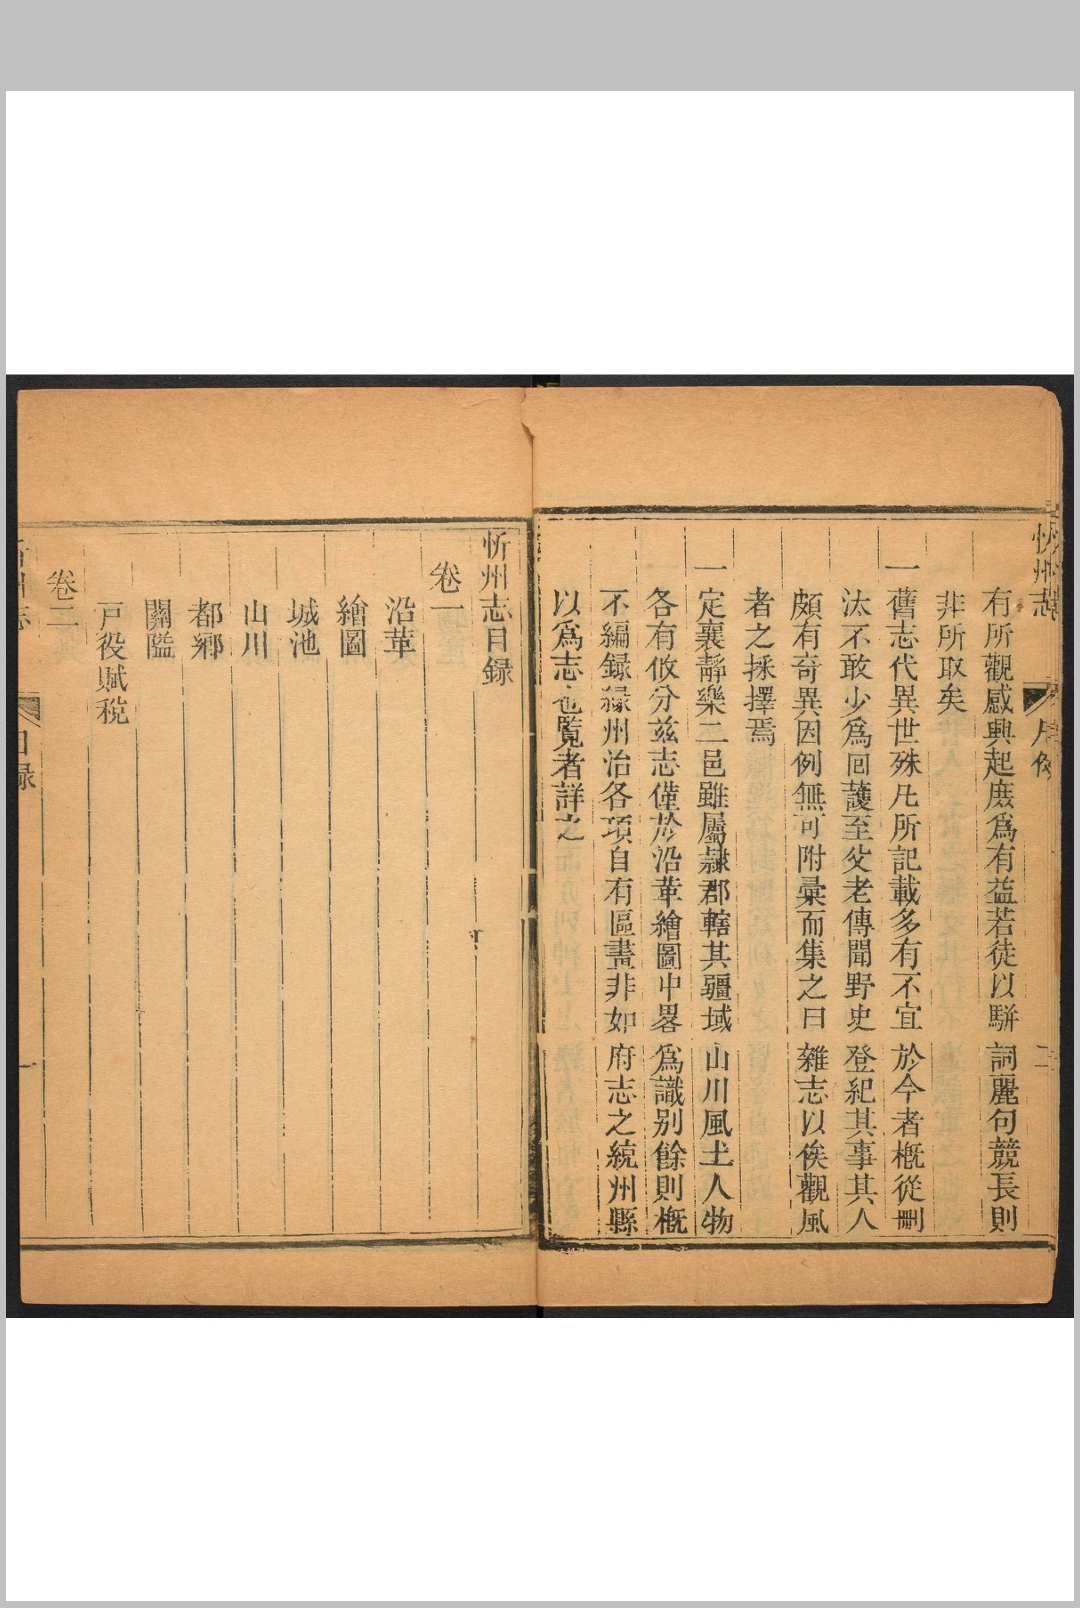 忻州志
凡例
二
有所觀感興起庶爲有益若徒以駢詞麗句競長則
非所取矣
一舊志代異世殊凡所記載多有不宜於今者槪從刪
汰不敢少爲回護至父老傳聞野史登紀其事其人
頗有奇異因例無可附彙而集之曰雜志以俟觀風
者之採擇焉
一定襄靜樂二邑雖屬隷郡轄其疆域山川風土人物
各有攸分兹志僅於沿革繪圖中畧爲識別餘則槪
不編録緣州治各項自有區畫非如府志之統州縣
以爲志也覧者詳之
忻州志目録
卷一
沿革
繪圖
城池
山川
都鄕
關隘
戸役賦稅
卷二
忻州志
目録
一